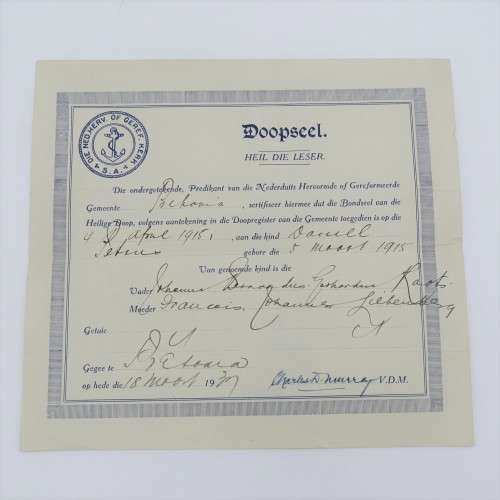 DIE NED. HERV. OF GEREF. KERK
S.A.
Doopseel.
HEIL DIE LESER.
Die ondergetekende, Predikant van die Nederduits Hervormde of Gereformeerde
Gemeente Pretoria, sertifiseer hiermee dat die Bondseel van die
Heilige Doop, volgens aantekening in die Doopregister van die Gemeente toegedien is op die
4 April 1915, aan die kind Daniel
Petrus gebore die 5 Maart 1915
Van genoemde kind is die
Vader Johannes Gerhardus Raats
Moeder Francois Johannes Liebenberg
Getuie
Gegee te Pretoria
op hede die 18 Maart 1937 Charles Murray V.D.M.